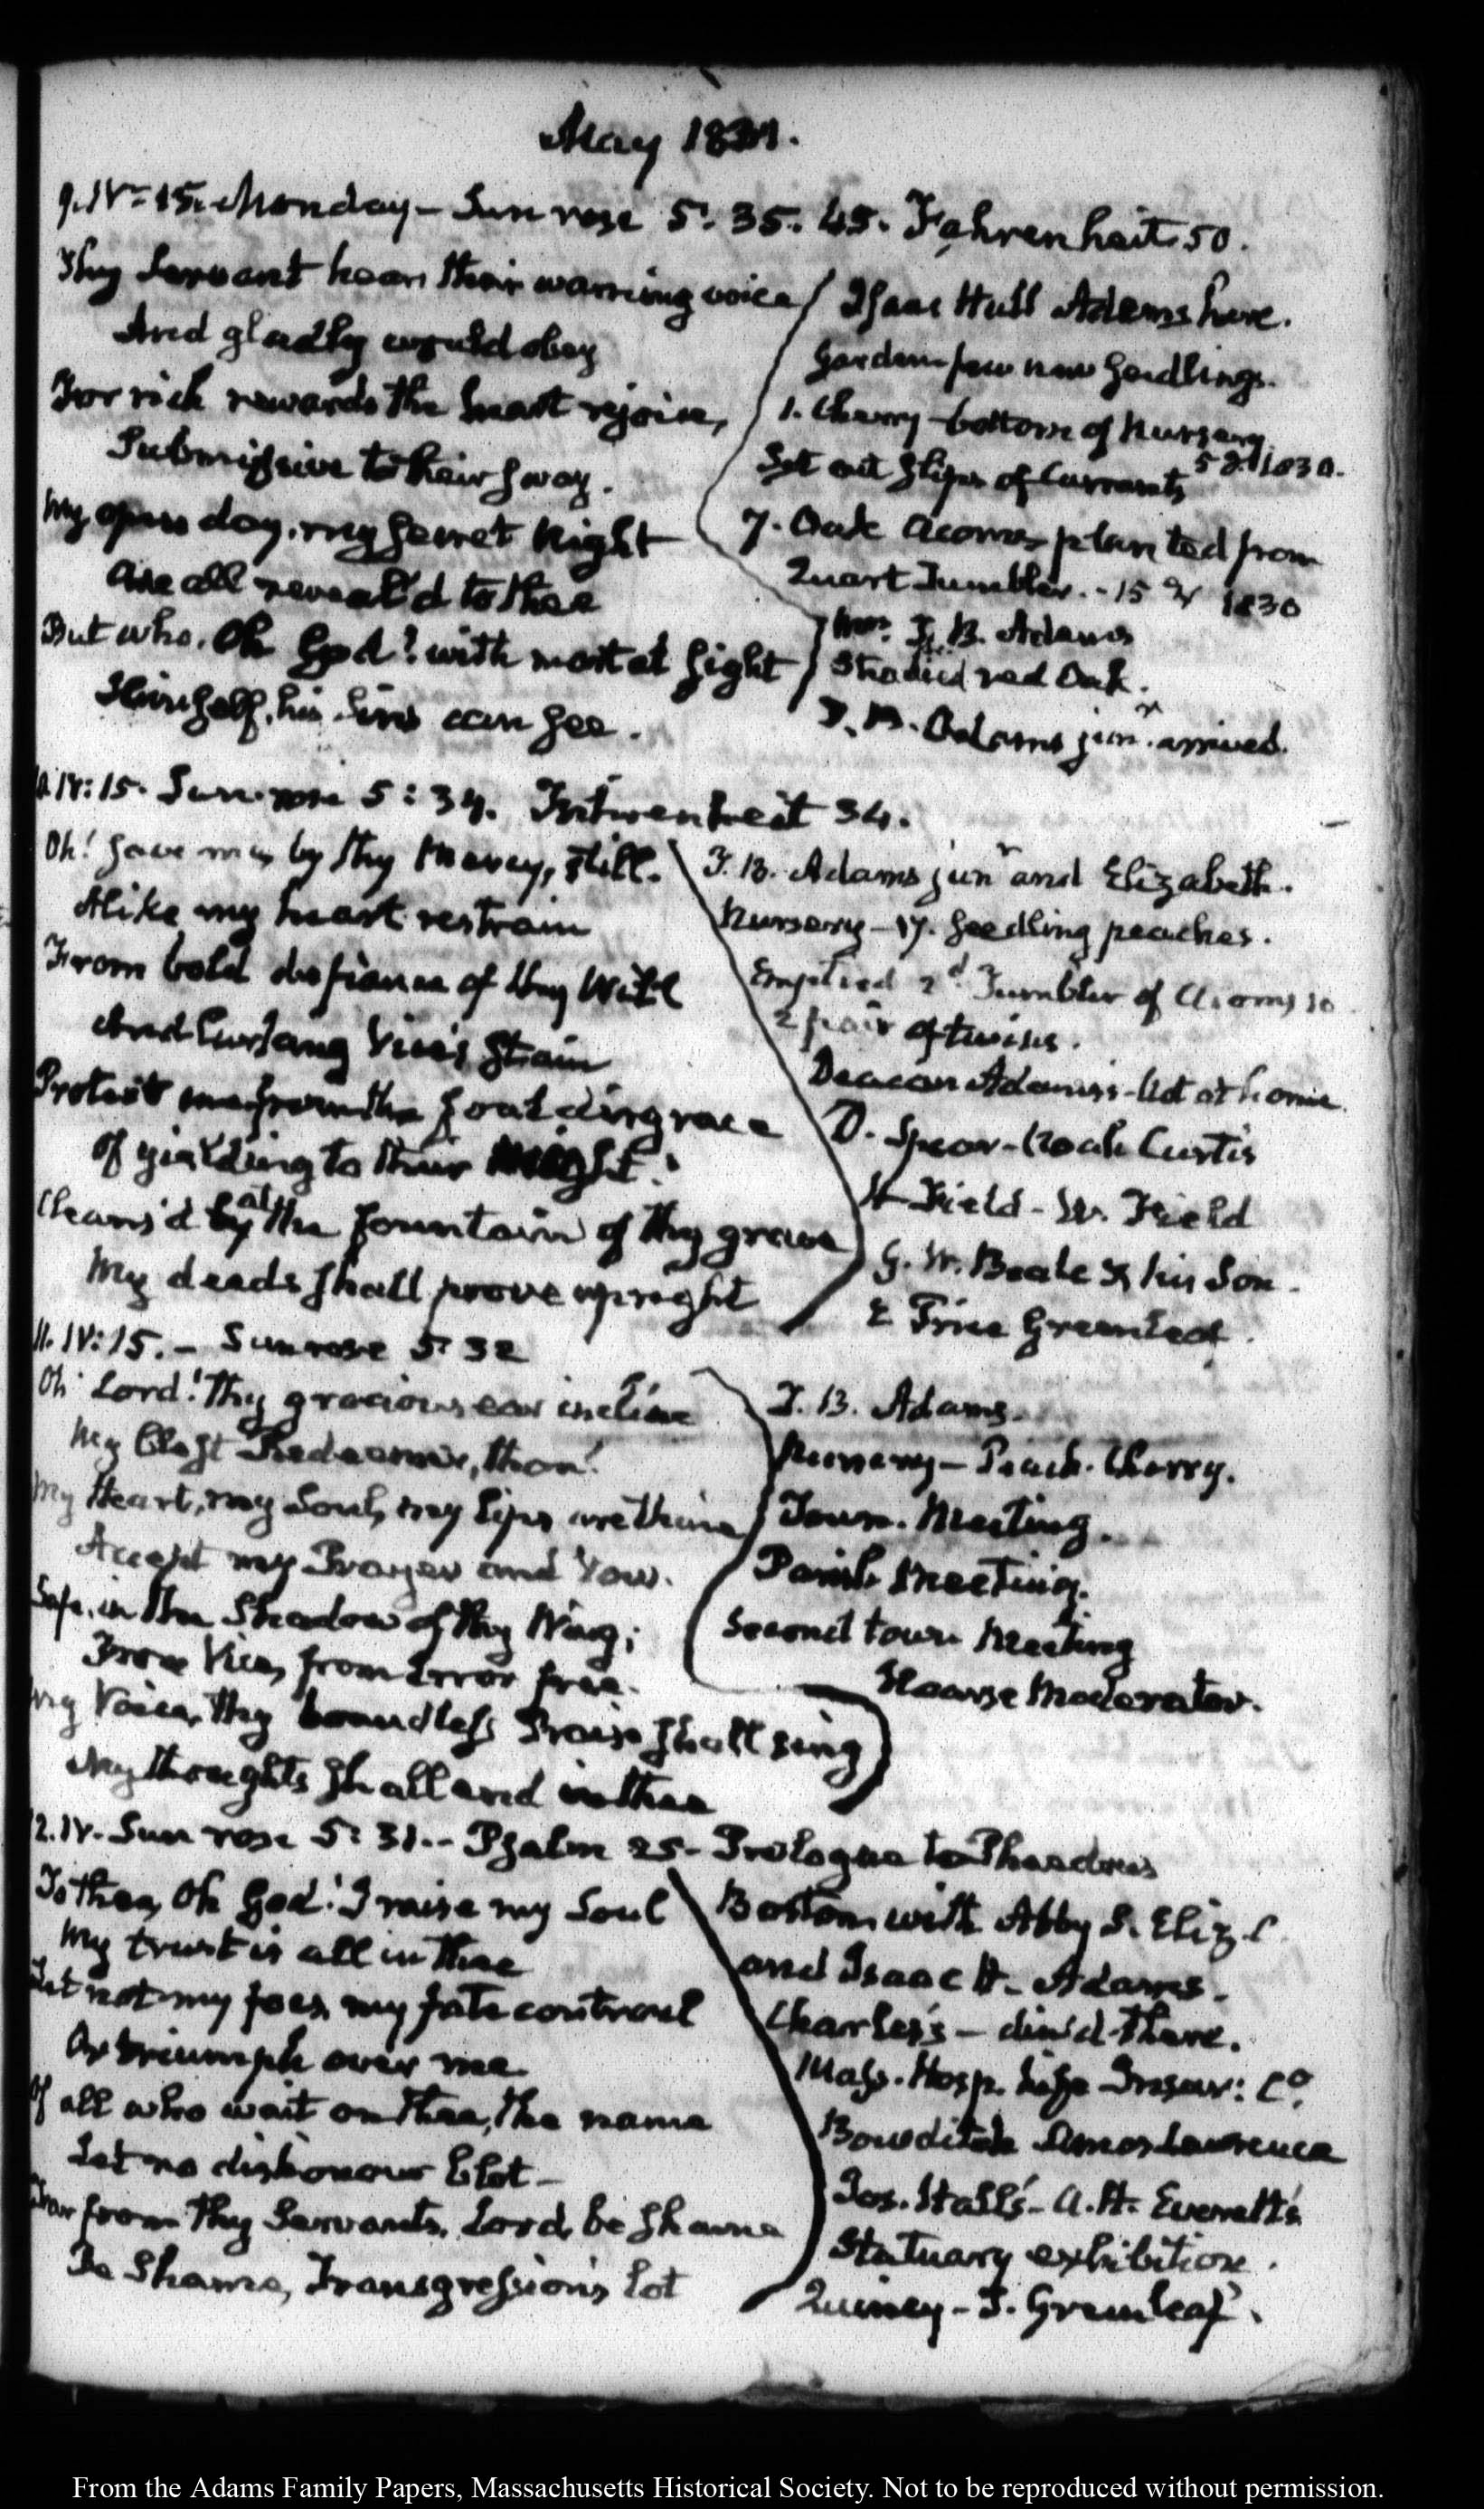 May 1831.
9. IV: 15. Monday – Sun rose 5: 35. 45. Fahrenheit 50.
Thy Servant hears their warning voice
And gladly would obey
For rich rewards the heart rejoice,
Submissive to their sway.
My open day, my secret Night
Are all reveal'd to thee
But who, Oh God! with mortal sight
Himself, his Sins can see.
Isaac Hull Adams here.
Garden few new Seedlings.
1. Cherry – bottom of Nursery
Set out slips of Currants
1830.
7. Oak Acorns planted from
Quart Tumbler. - 15 1830
Mrs. T. B. Adams
Shaded red Oak.
T. B. Adams junr. arrived.
10. IV: 15. Sun rose 5: 34. Fahrenheit 54.
Oh! save me, by thy Mercy, still.
Alike my heart restrain
From bold defiance of thy Will
And Vice's stain
Protect me from the foul disgrace
Of yielding to their might:
Cleans'd by at the fountain of thy grace
My deeds shall prove upright
T. B. Adams junr and Elizabeth.
Nursery – 17. Seedling peaches.
Emptied 2d Tumbler of Acorns 10
2 pair of twins.
Deacon Adams's – Not at home
D. Spear – Noah Curtis
H Field – W. Field
G. W. Beale & his Son
& Price Greenleaf.
11. IV: 15. – Sun rose 5: 32
Oh! Lord! Thy gracious ear incline
My blest Redeemer, thou!
My Heart, my Soul, my Lips are thine
Accept my Prayer and Vow.
Safe, in the Shadow of thy Wing;
From Vice, from Error free.
My Voice, thy boundless Praise shall sing
My thoughts shall end in thee
T. B. Adams.
Nursery – Peach. Cherry.
Town. Meeting.
Parish Meeting.
Second town Meeting
Hoarse Moderator.
12. IV. Sun rose 5: 31. – Psalm 25 – Prologue to Phaedrus
To thee, Oh God! I raise my Soul
My trust is all in thee
Let not my foes my fate controul
Or triumph over me
Of all who wait on thee, the name
Let no dishonour blot –
Far from thy Servants, Lord, be shame
Be Shame, Transgression's lot
Boston with Abby S. Eliz. C.
and Isaac H. Adams.
Charles's – din'd there.
Mass. Hosp. Life Insur: Co.
Bowditch Amos Lawrence
Jos. Hall's – A. H. Everett's
Statuary exhibition.
Quincy – T. Greenleaf.
From the Adams Family Papers, Massachusetts Historical Society. Not to be reproduced without permission.